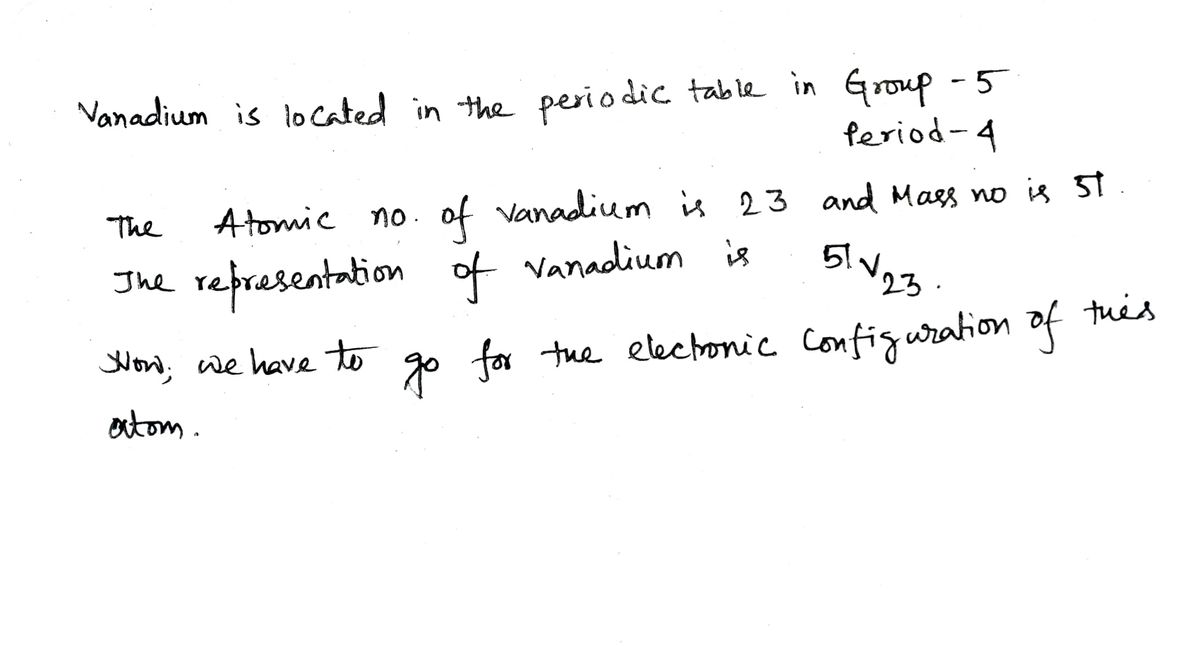 Vanadium is located in the periodic table in Group - 5
Period - 4
The Atomic no. of vanadium is 23 and Mass no is 51.
The representation of vanadium is 51 V 23.
Now, we have to go for the electronic configuration of this
atom.